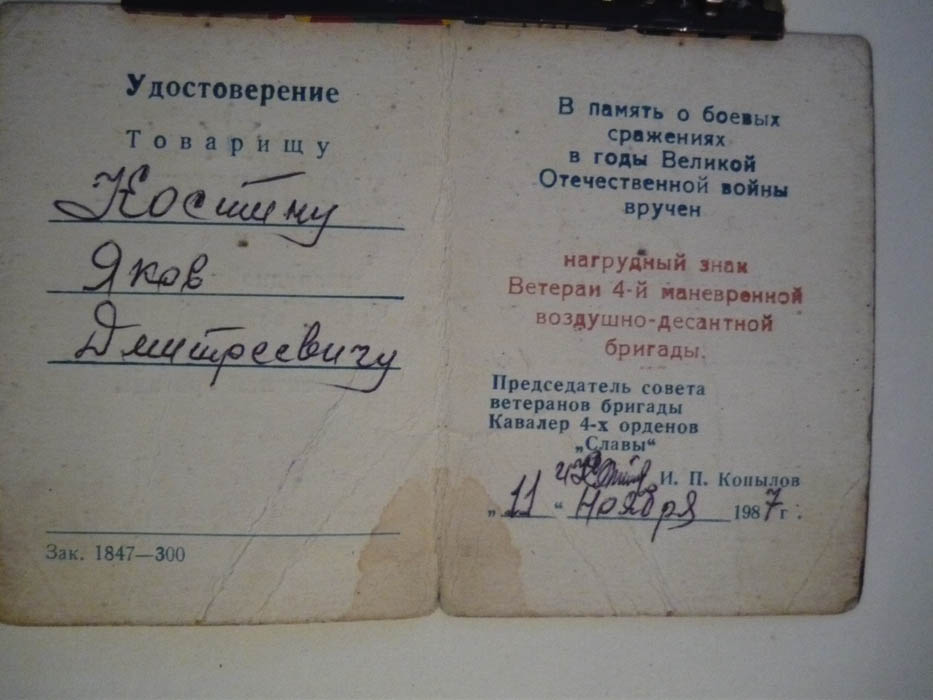 Удостоверение
Товарищу
Костину
Яков
Дмитреевичу
Зак. 1847—300
В память о боевых
сражениях
в годы Великой
Отечественной войны
вручен
нагрудный знак
Ветеран 4-й маневренной
воздушно-десантной
бригады.
Председатель совета
ветеранов бригады
Кавалер 4-х орденов
„Славы“
И. П. Копылов
„ 11 “ Ноября 1987 г.